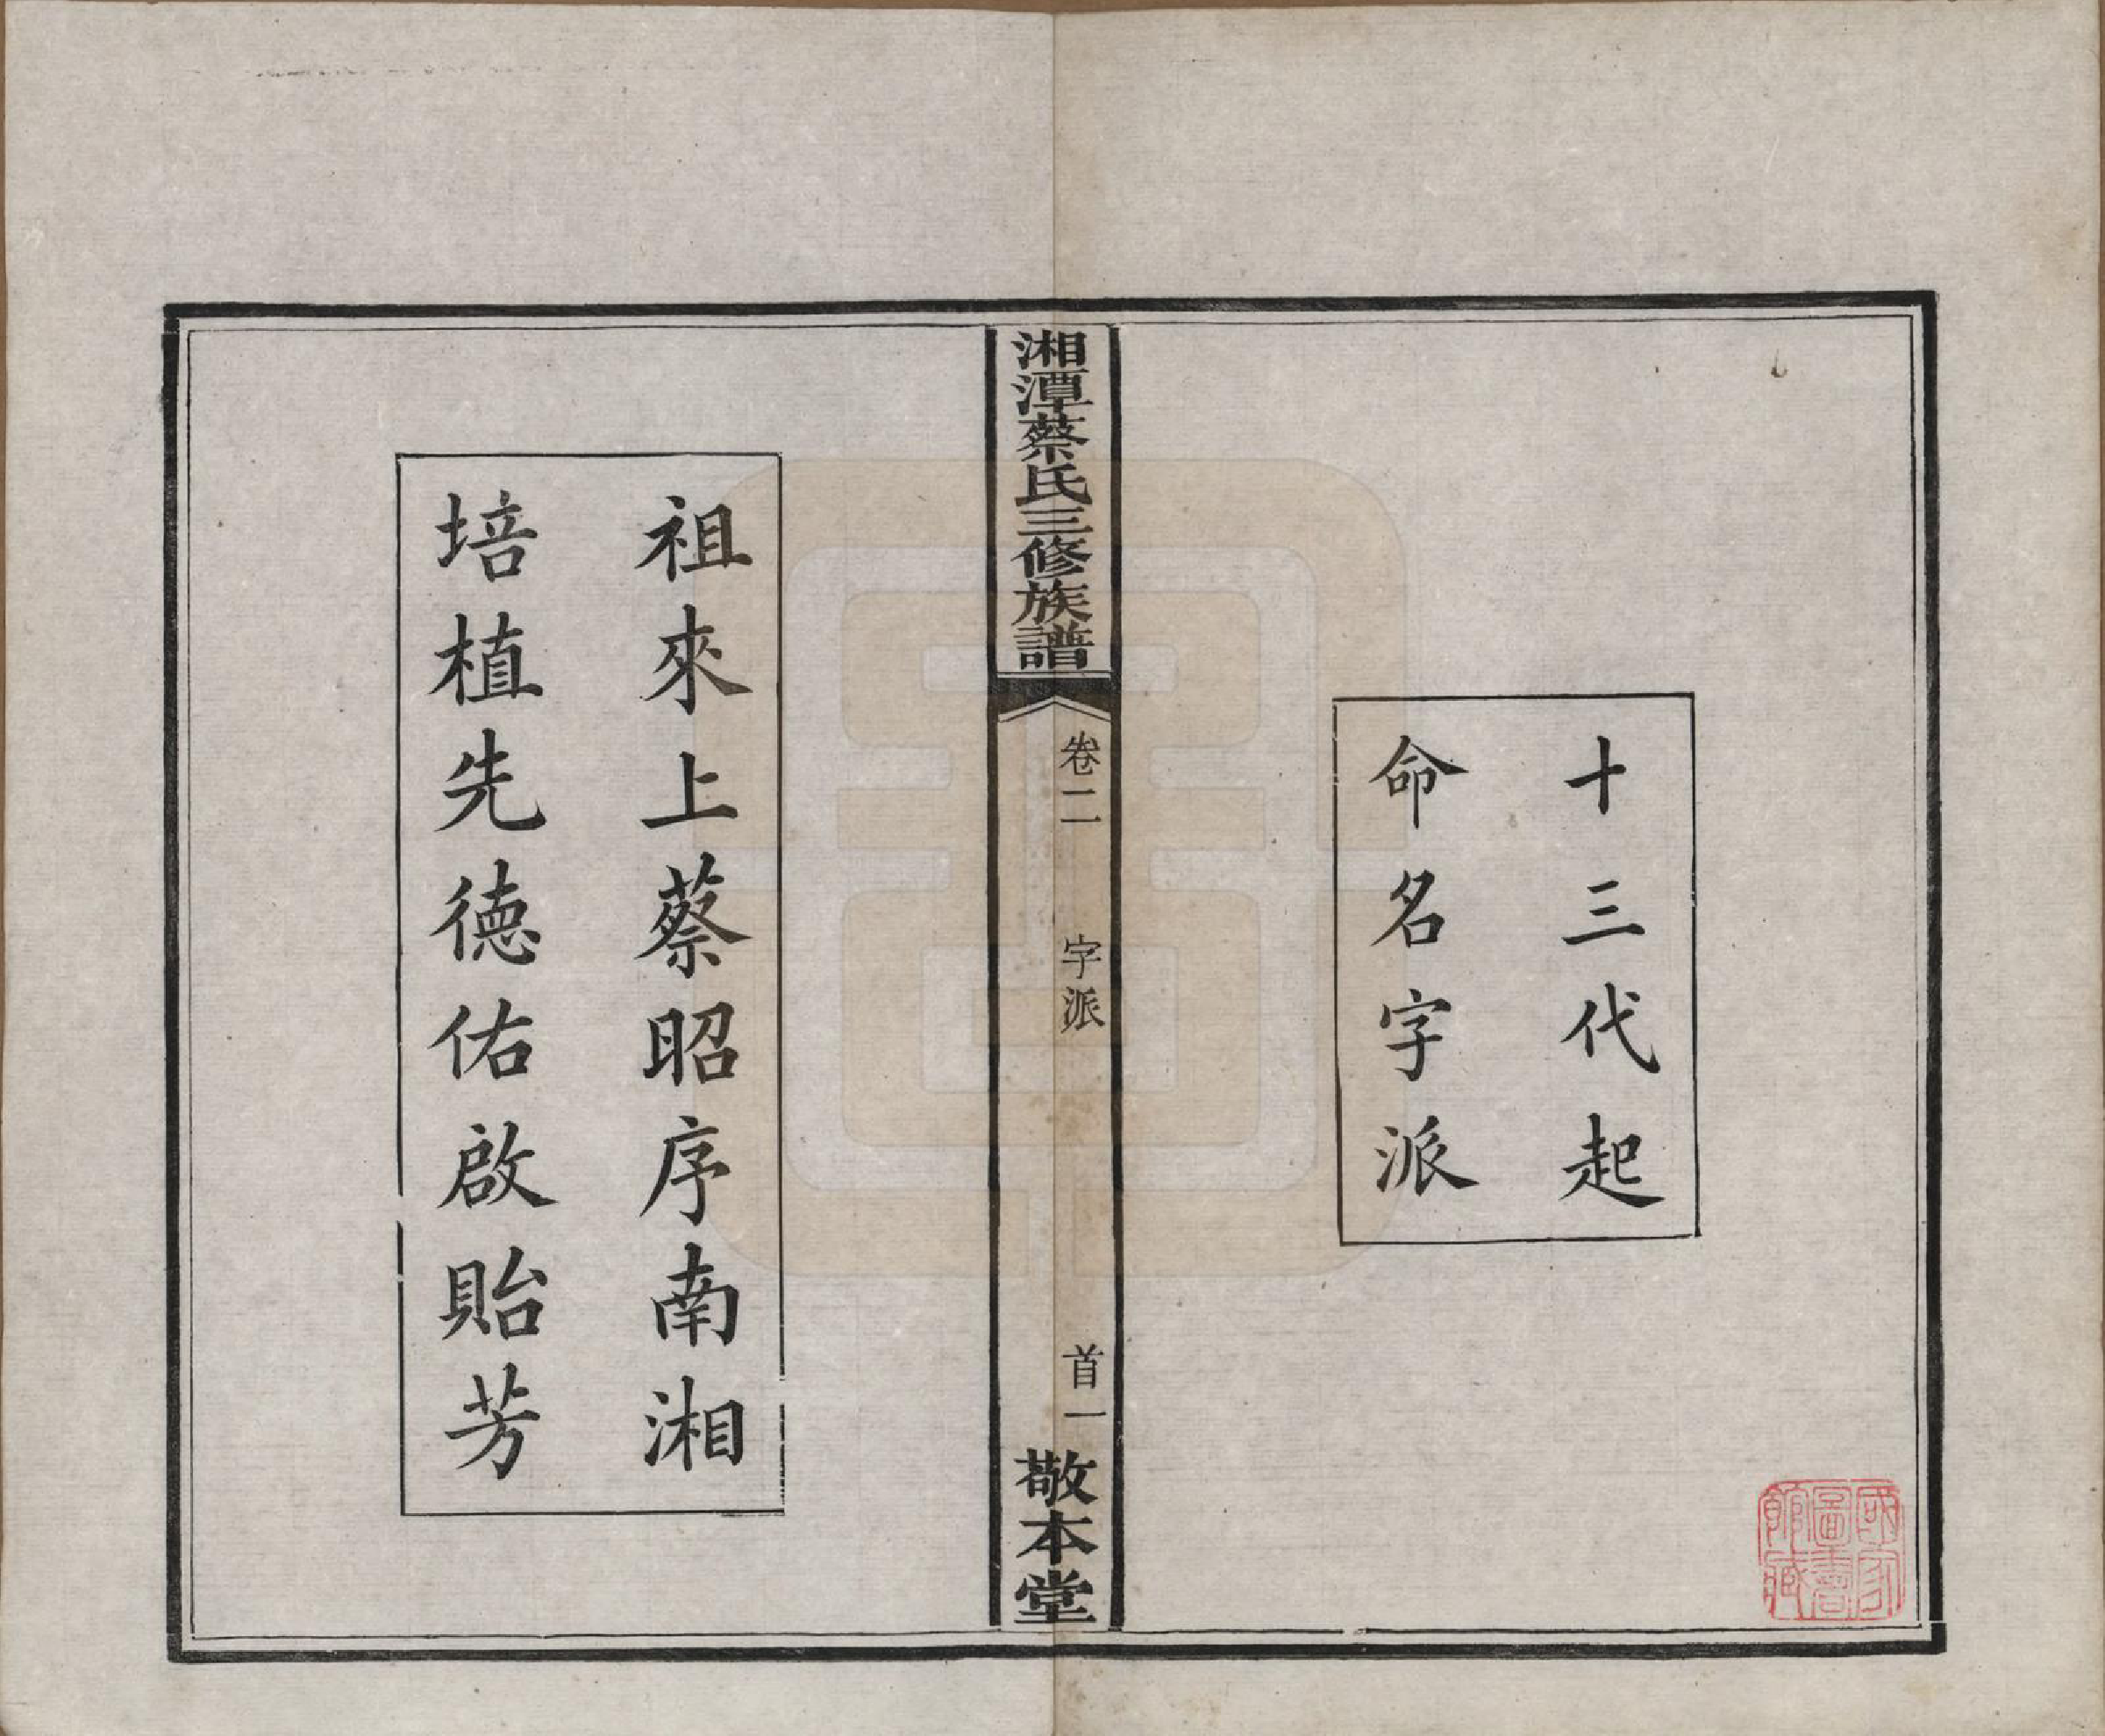 十三代起
命名字派
湘潭蔡氏三修族譜
卷二
字派
首一
敬本堂
祖來上蔡昭序南湘
培植先德佑啟貽芳
國家
圖書
館藏